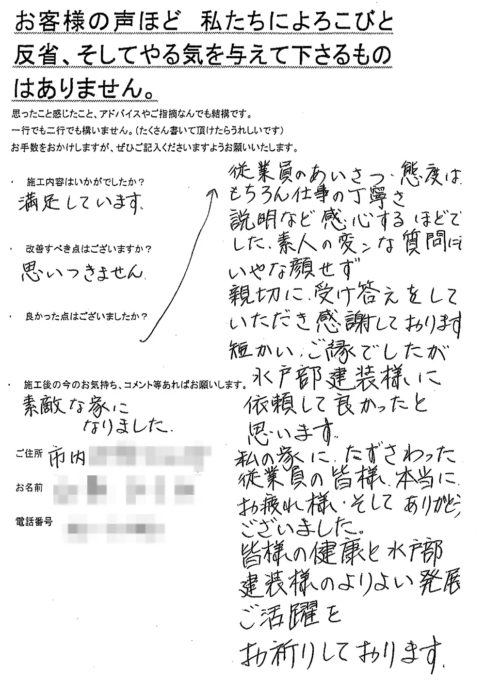 お客様の声ほど　私たちによろこびと
反省、そしてやる気を与えて下さるもの
はありません。
思ったこと感じたこと、アドバイスやご指摘なんでも結構です。
一行でも二行でも構いません。（たくさん書いて頂けたらうれしいです）
お手数をおかけしますが、ぜひご記入くださいますようお願いいたします。
・　施工内容はいかがでしたか？
満足しています。
・　改善すべき点はございますか？
思いつきません。
・　良かった点はございましたか？
従業員のあいさつ、態度は
もちろん仕事の丁寧さ
説明など感心するほどで
した。素人の変ンな質問に
いやな顔せず
親切に受け答えをして
いただき感謝しております
短かいご縁でしたが
水戸部建装様に
依頼して良かったと
思います。
私の家に、たずさわった
従業員の皆様、本当に
お疲れ様・そしてありがとう
ございました。
皆様の健康と水戸部
建装様のよりよい発展
ご活躍を
お祈りしております。
・　施工後の今のお気持ち、コメント等あればお願いします。
素敵な家に
なりました。
ご住所　市内
お名前
電話番号